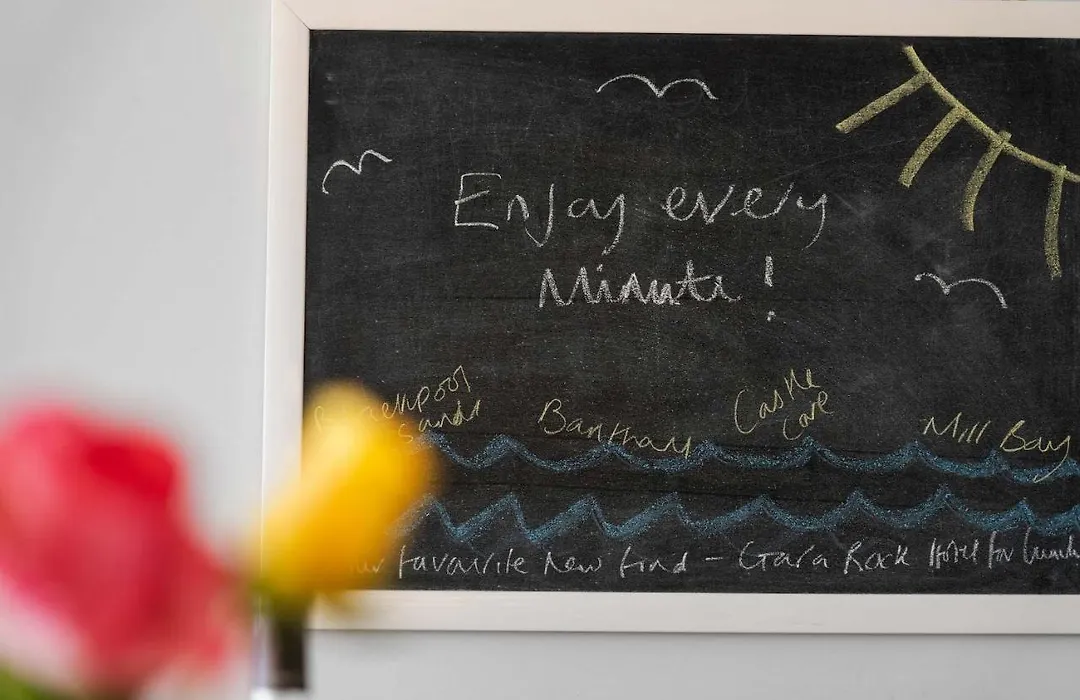 Enjoy every
Minute!
Blackpool
Sands
Bantham
Castle
Cove
Mill Bay
our favourite New find - Gara Rock Hotel for lunch